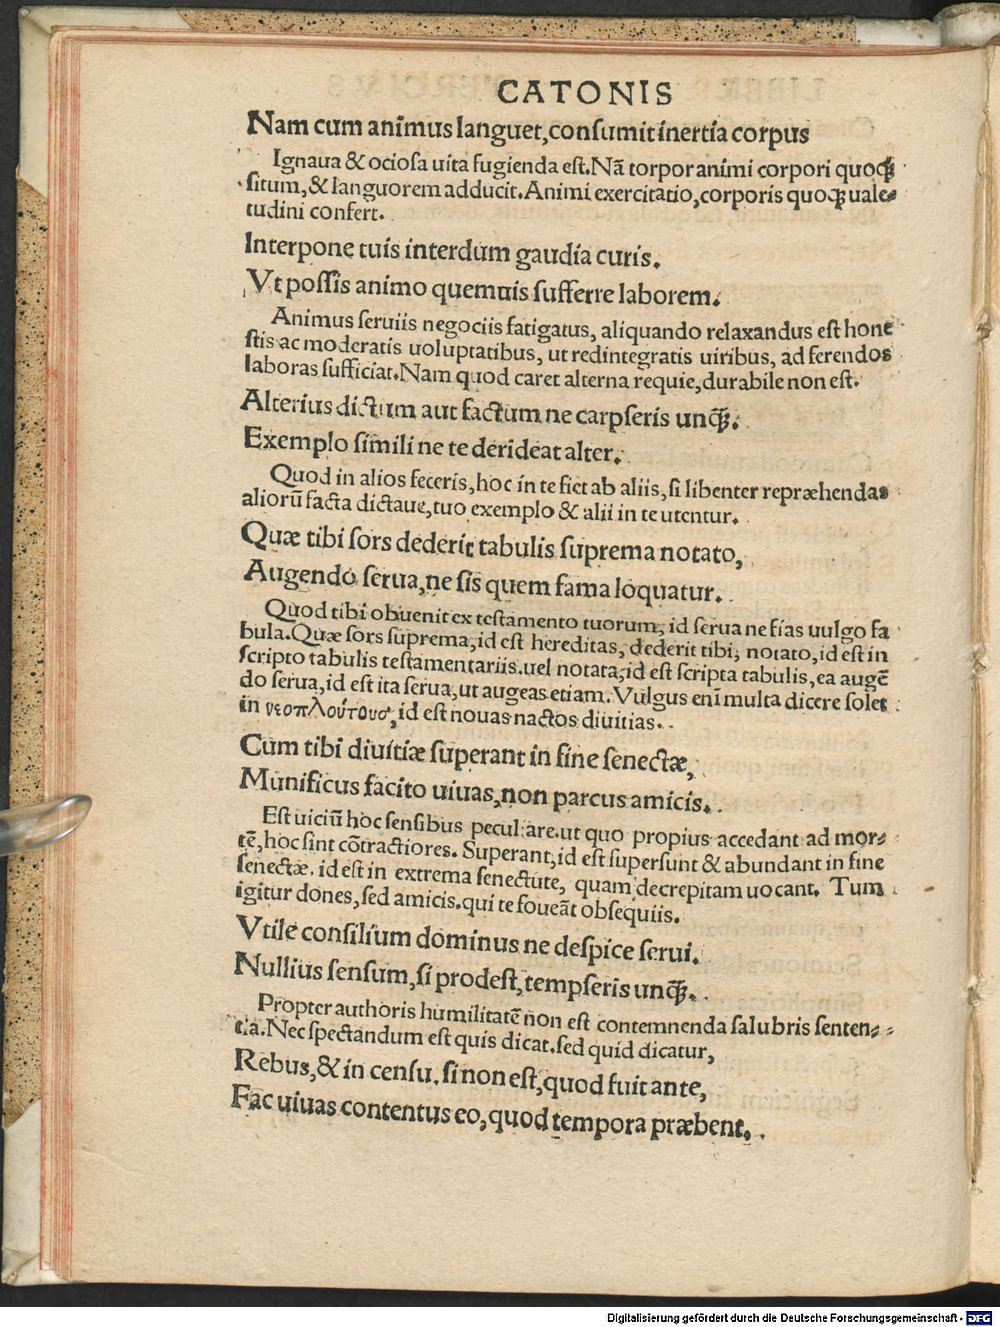 CATONIS
Nam cum animus languet, consumit inertia corpus
Ignaua & ociosa uita fugienda est. Nã torpor animi corpori quoqꝫ
situm, & languorem adducit. Animi exercitatio, corporis quoqꝫ uale-
tudini confert.
Interpone tuis interdum gaudia curis.
Vt possis animo quemuis sufferre laborem.
Animus seruiis negociis fatigatus, aliquando relaxandus est hone
stis ac moderatis uoluptatibus, ut redintegratis uiribus, ad ferendos
laboras sufficiat. Nam quod caret alterna requie, durabile non est.
Alterius dictum aut factum ne carpseris unqꝫ.
Exemplo simili ne te derideat alter.
Quod in alios feceris, hoc in te fiet ab aliis, si libenter repræhendas
aliorũ facta dictaue, tuo exemplo & alii in te utentur.
Quæ tibi sors dederit tabulis suprema notato,
Augendo serua, ne sis quem fama loquatur.
Quod tibi obuenit ex testamento tuorum, id serua ne fias uulgo fa
bula. Quæ sors suprema, id est hereditas, dederit tibi, notato, id est in
scripto tabulis testamentariis. uel notata, id est scripta tabulis, ea augẽ
do serua, id est ita serua, ut augeas etiam. Vulgus enĩ multa dicere solet
in νεοπλούτους, id est nouas nactos diuitias.
Cum tibi diuitiæ superant in fine senectæ,
Munificus facito uiuas, non parcus amicis.
Est uiciũ hoc sensibus peculiare. ut quo propius accedant ad mor-
tẽ, hoc sint cõtractiores. Superant, id est supersunt & abundant in fine
senectæ. id est in extrema senectute, quam decrepitam uocant. Tum
igitur dones, sed amicis. qui te foueãt obsequiis.
Vtile consilium dominus ne despice serui.
Nullius sensum, si prodest, tempseris unqꝫ.
Propter authoris humilitatẽ non est contemnenda salubris senten-
tia. Nec spectandum est quis dicat. sed quid dicatur,
Rebus, & in censu. si non est, quod fuit ante,
Fac uiuas contentus eo, quod tempora præbent.
Digitalisierung gefördert durch die Deutsche Forschungsgemeinschaft - DFG